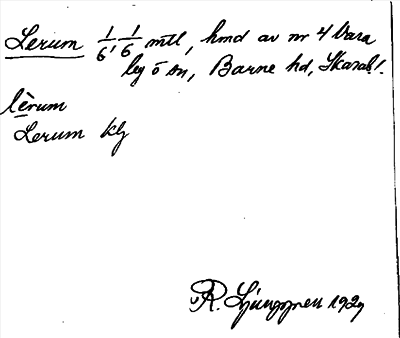 Lerum 1/6, 1/6 mtl, hmd av nr 4 Vara
lej ö sn, Barne hd, Skarab. l.
lèrum
Lerum klj
R. Ljunggren 1929